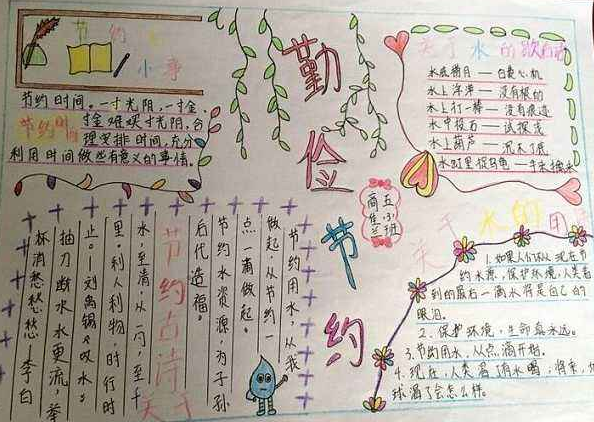 节约
小事
节约时间。一寸光阴,一寸金,
节约时间
寸金难买寸光阴,合
理安排时间,充分
利用时间做些有意义的事情。
勤俭节约
五小班
关于水的歇后语
水底捞月——白费心机
水上浮萍——没有根的
水上打一棒——没有痕迹
水中投石——试探浅
水上葫芦——沉不了底
节约用水,从我
做起从节约一
点一滴做起。
节约水资源,为子孙
后代造福。
关于节约古诗
水至清,从一勺,至千
里。利人利物,时行时
止。——刘禹锡《叹水》
抽刀断水水更流,举
杯消愁愁愁 李白
关于水的
1.如果人们不从现在节
约水源,保护环境,人类看
到的最后一滴水将是自己的
眼泪。
2.保护环境,生命最永远。
3.节约用水,从点滴开始。
4.现在,人类渴了有水喝;将来,
球渴了会怎么样。